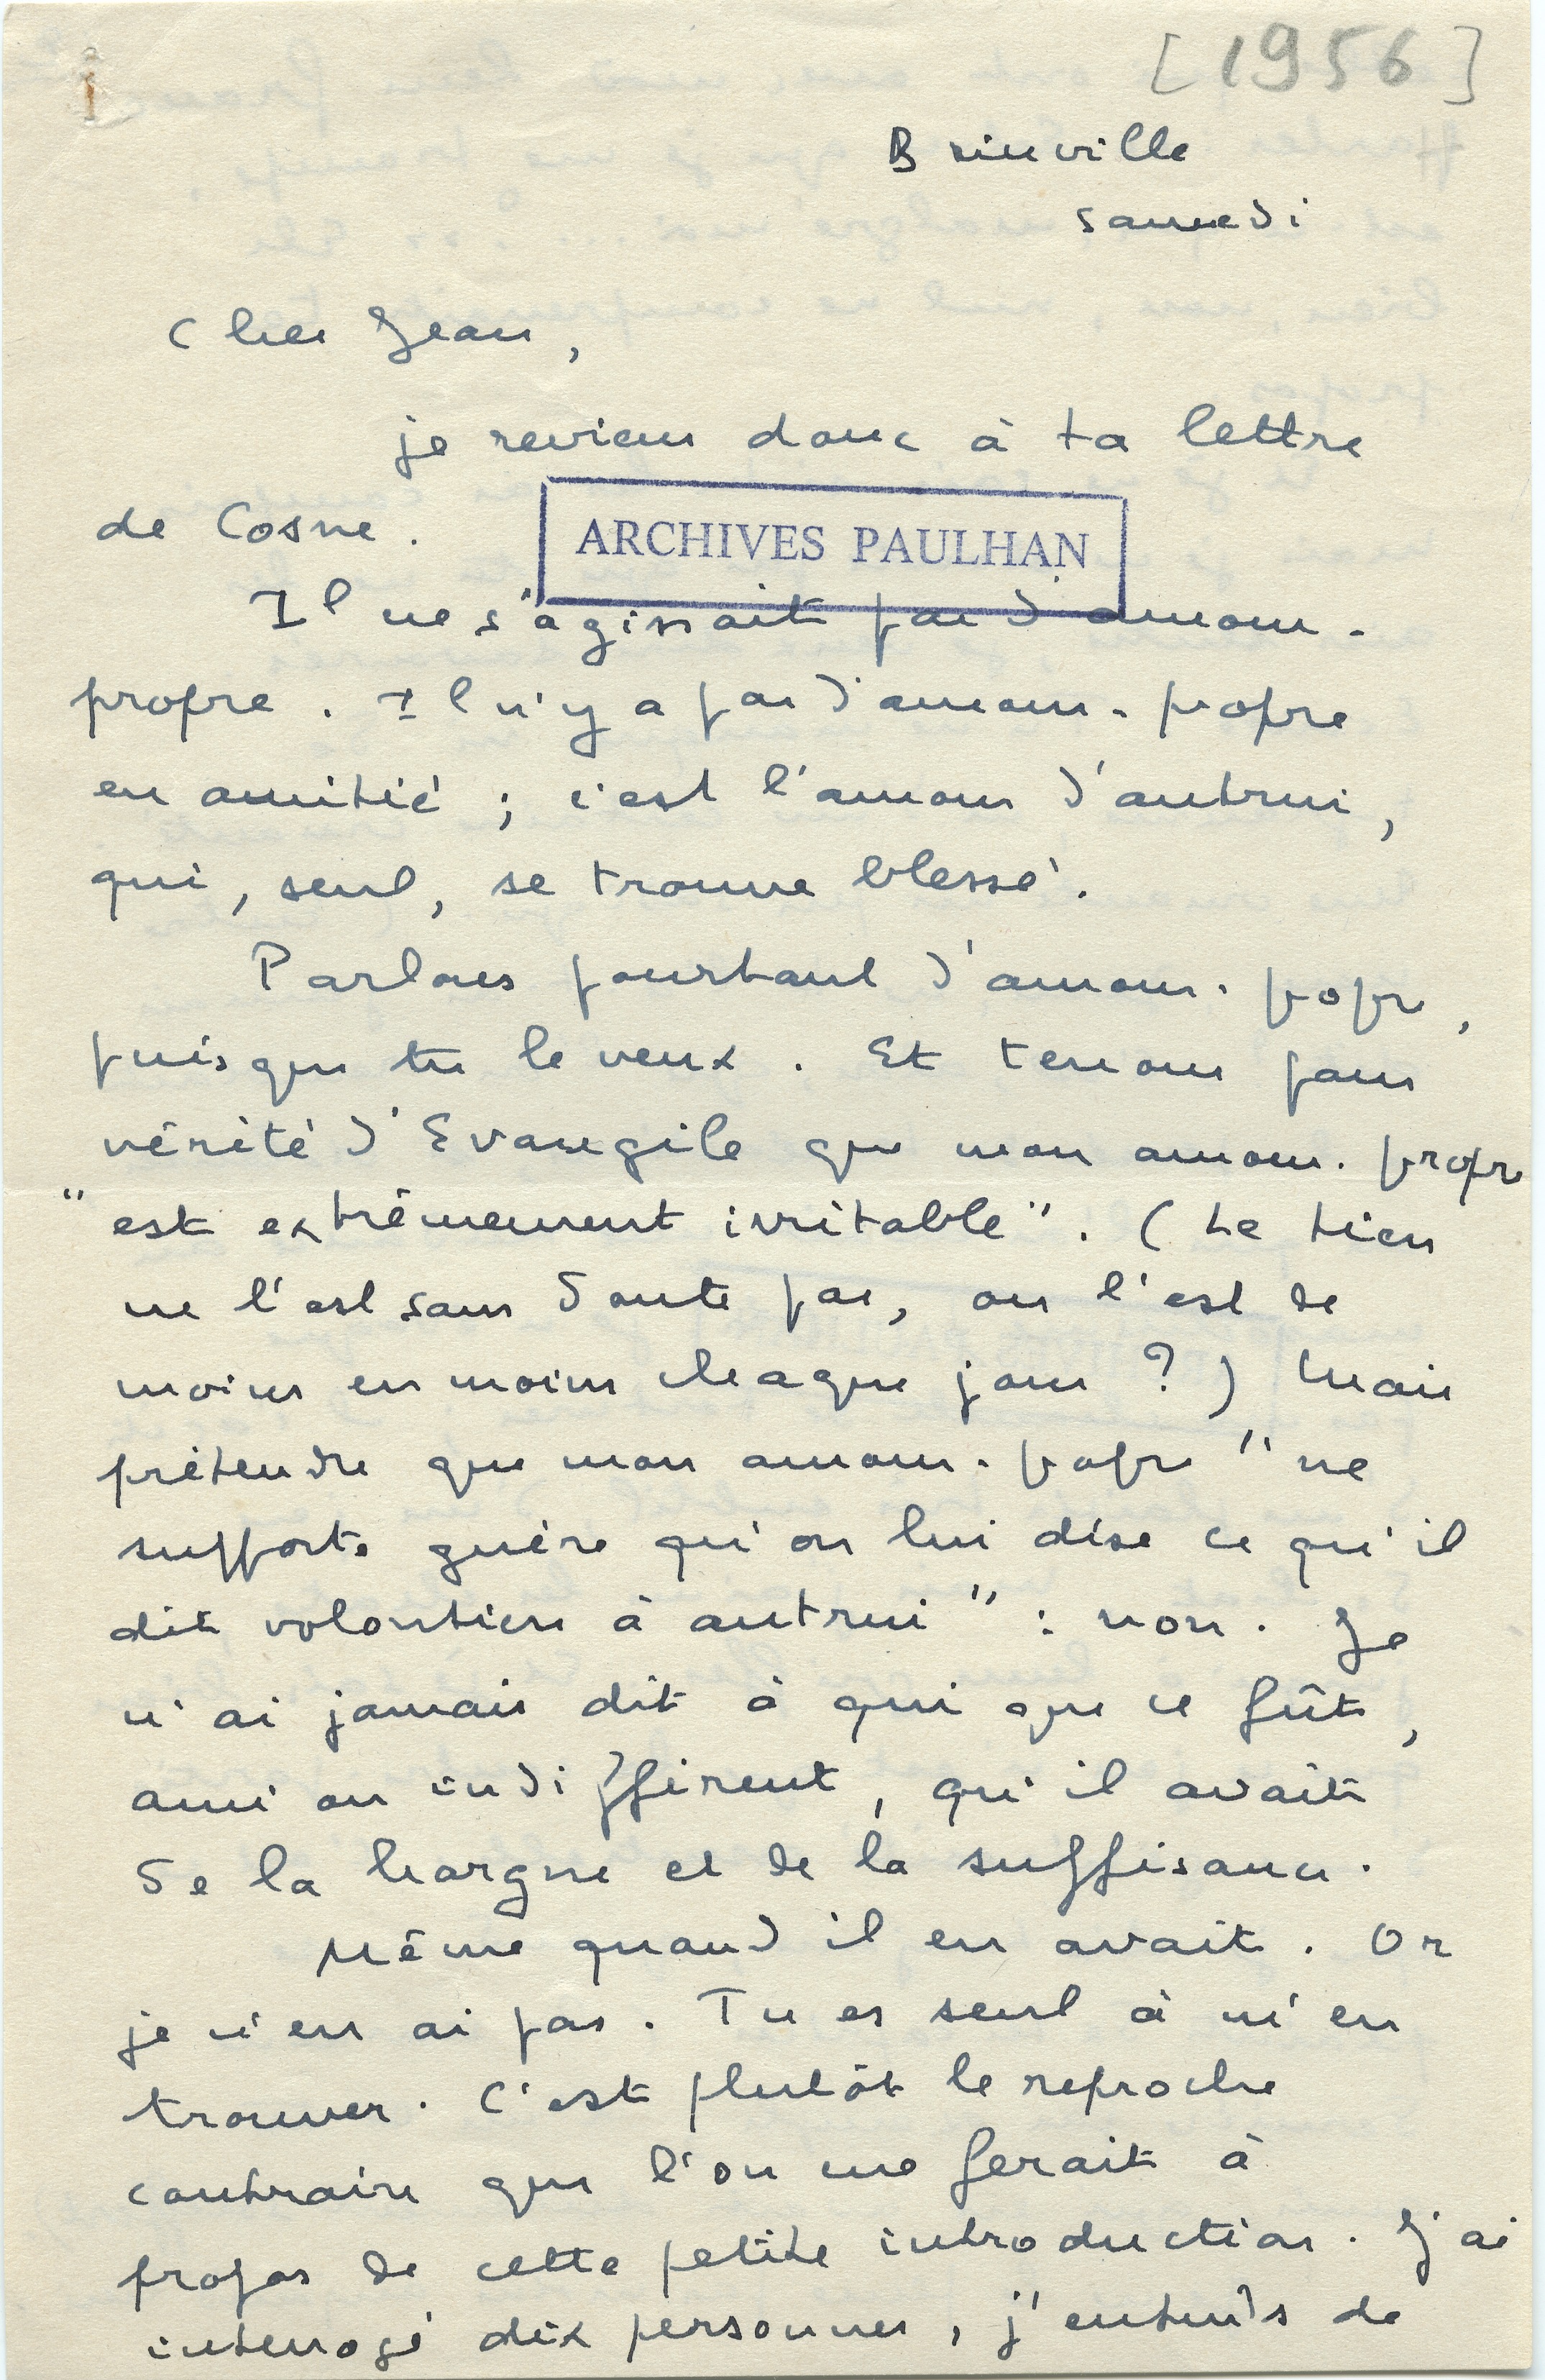 [1956]
Brinville
samedi
Cher Jean,
je reviens donc à ta lettre
de Cosne.
ARCHIVES PAULHAN
Il ne s'agissait pas d'amour-
propre. Il n'y a pas d'amour-propre
en amitié ; c'est l'amour d'autrui,
qui, seul, se trouve blessé.
Parlons pourtant d'amour-propre,
puisque tu le veux. Et tenons pour
vérité d'Evangile que mon amour-propre
"est extrêmement irritable". (Le tien
ne l'est sans doute pas, ou l'est de
moins en moins chaque jour ?) Mais
prétendre que mon amour-propre "ne
supporte guère qu'on lui dise ce qu'il
dit volontiers à autrui" : non. Je
n'ai jamais dit à qui que ce fût,
ami ou indifférent, qu'il avait
de la hargne et de la suffisance.
Même quand il en avait. Or
je n'en ai pas. Tu es seul à m'en
trouver. C'est plutôt le reproche
contraire que l'on me ferait à
propos de cette petite introduction. J'ai
interrogé dix personnes, j'entends de